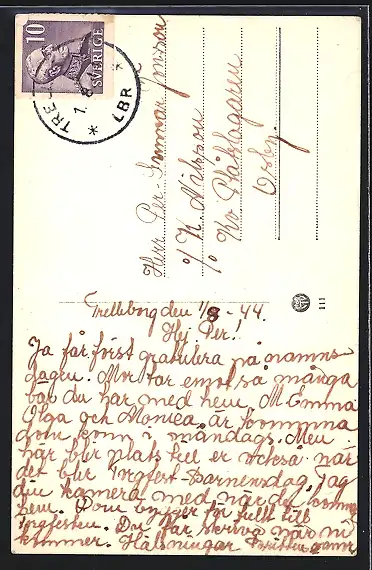 10
SVERIGE
TRE
LBR
1. 8
Herr Per-Gunnar Jönsson
c/o K. Nilsson
c/o Kv Plåtslagaren
Osby.
Trelleborg den 1/8 - 44.
Hej Per!
Ja får först gratulera på namns-
dagen. Mor tar emot så många
bär du har med hem. M. Emma
Olga och Monica är
som kom i måndags. Men
här blir plats till er också när
det blir Ingfest-Barnensdag. Jag
din kamera med när du kommer
hem. Dom bygger för fullt till
Ingfesten. Du får skriva när ni
kommer. Hälsningar
111